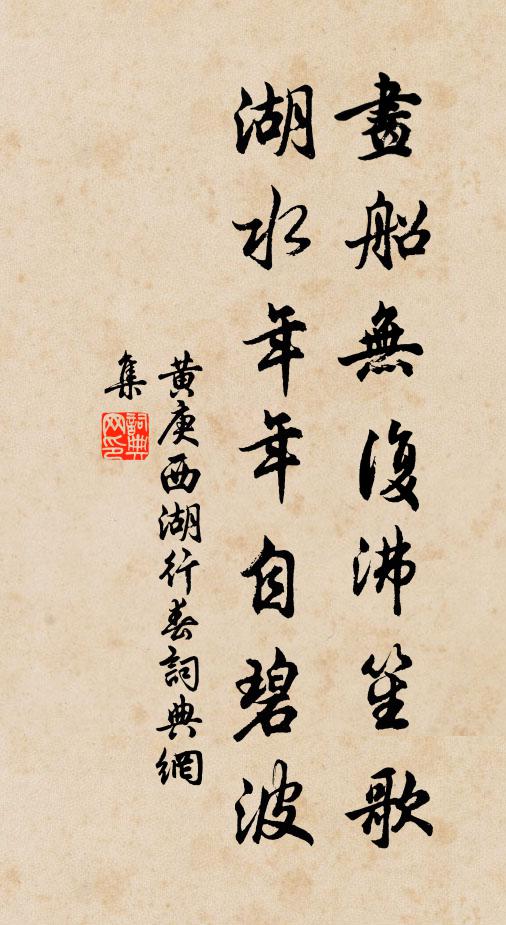 畫船無復沸笙歌
湖水年年自碧波
黃庚西湖行春詞典網
集
詞典網印